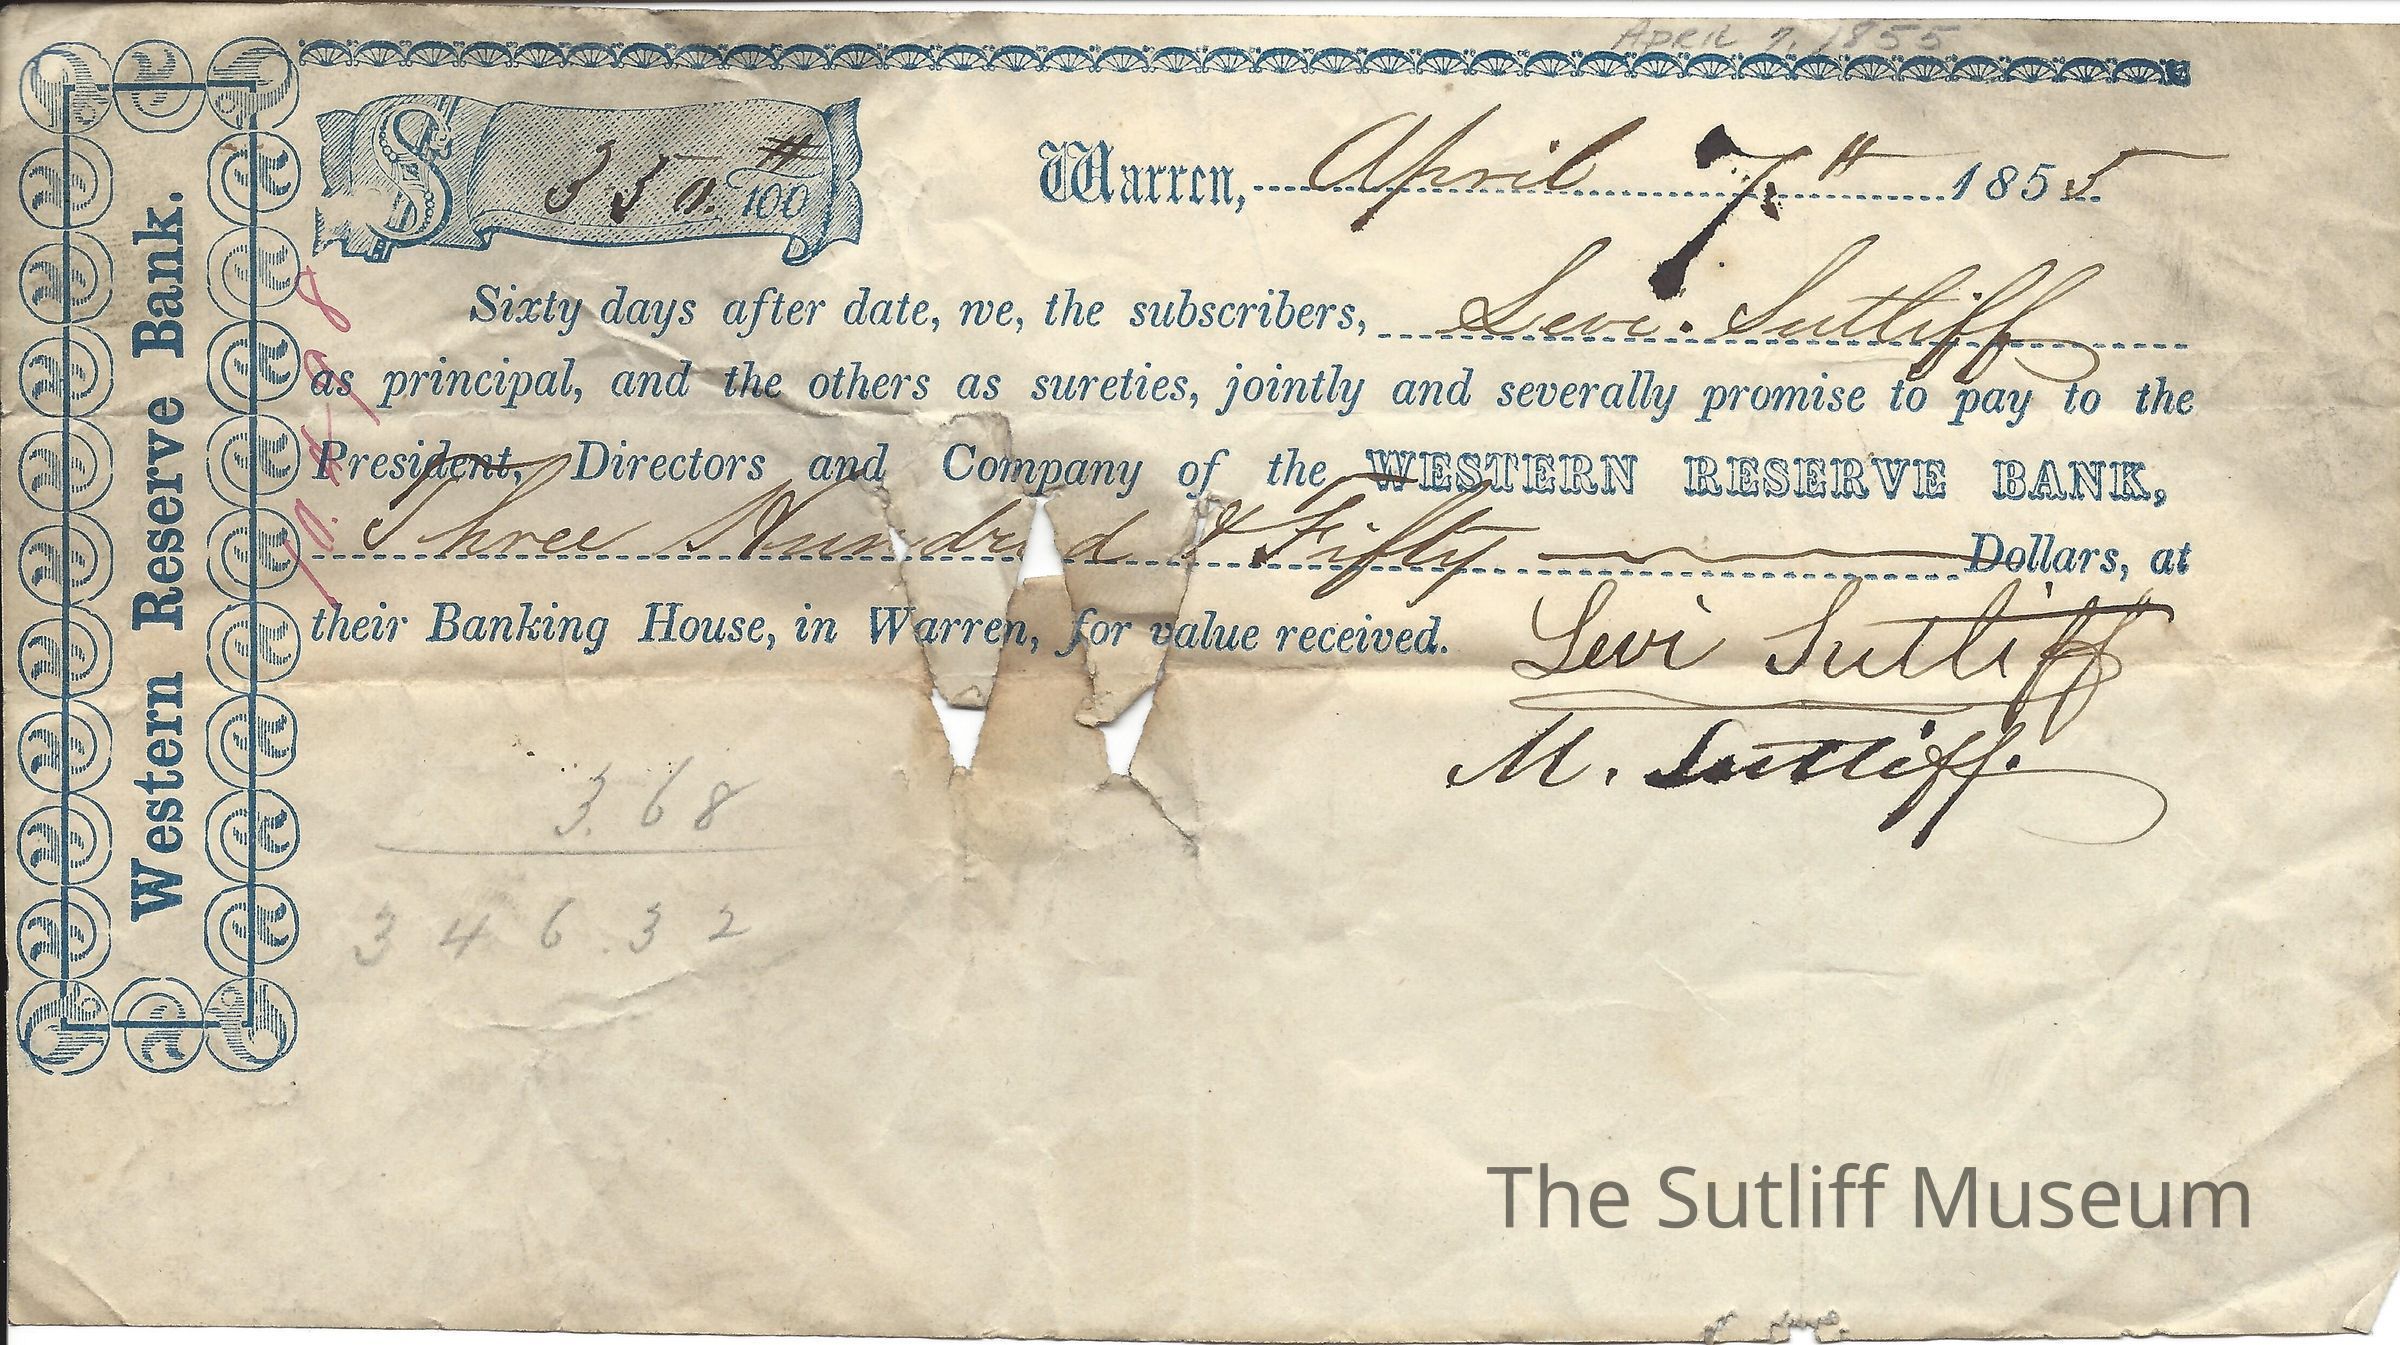 April 7, 1855
$ 350. #/100
Warren, April 7th 1855
Sixty days after date, we, the subscribers, Levi Sutliff
as principal, and the others as sureties, jointly and severally promise to pay to the
President, Directors and Company of the WESTERN RESERVE BANK,
Three Hundred & Fifty Dollars, at
their Banking House, in Warren, for value received.
Levi Sutliff
M. Sutliff.
Western Reserve Bank.
3.68
346.32
The Sutliff Museum